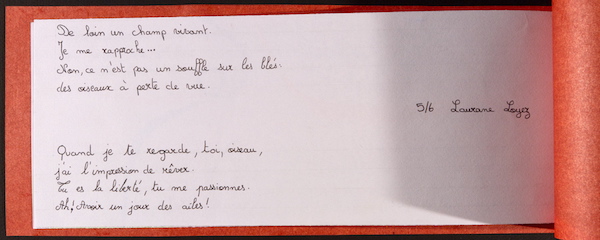 De loin un champ vivant.
Je me rapproche...
Non, ce n'est pas un souffle sur les blés:
des oiseaux à perte de vue.
5/6 Laurane Loyez
Quand je te regarde, toi, oiseau,
j'ai l'impression de rêver.
Tu es la liberté, tu me passionnes.
Ah! Avoir un jour des ailes!